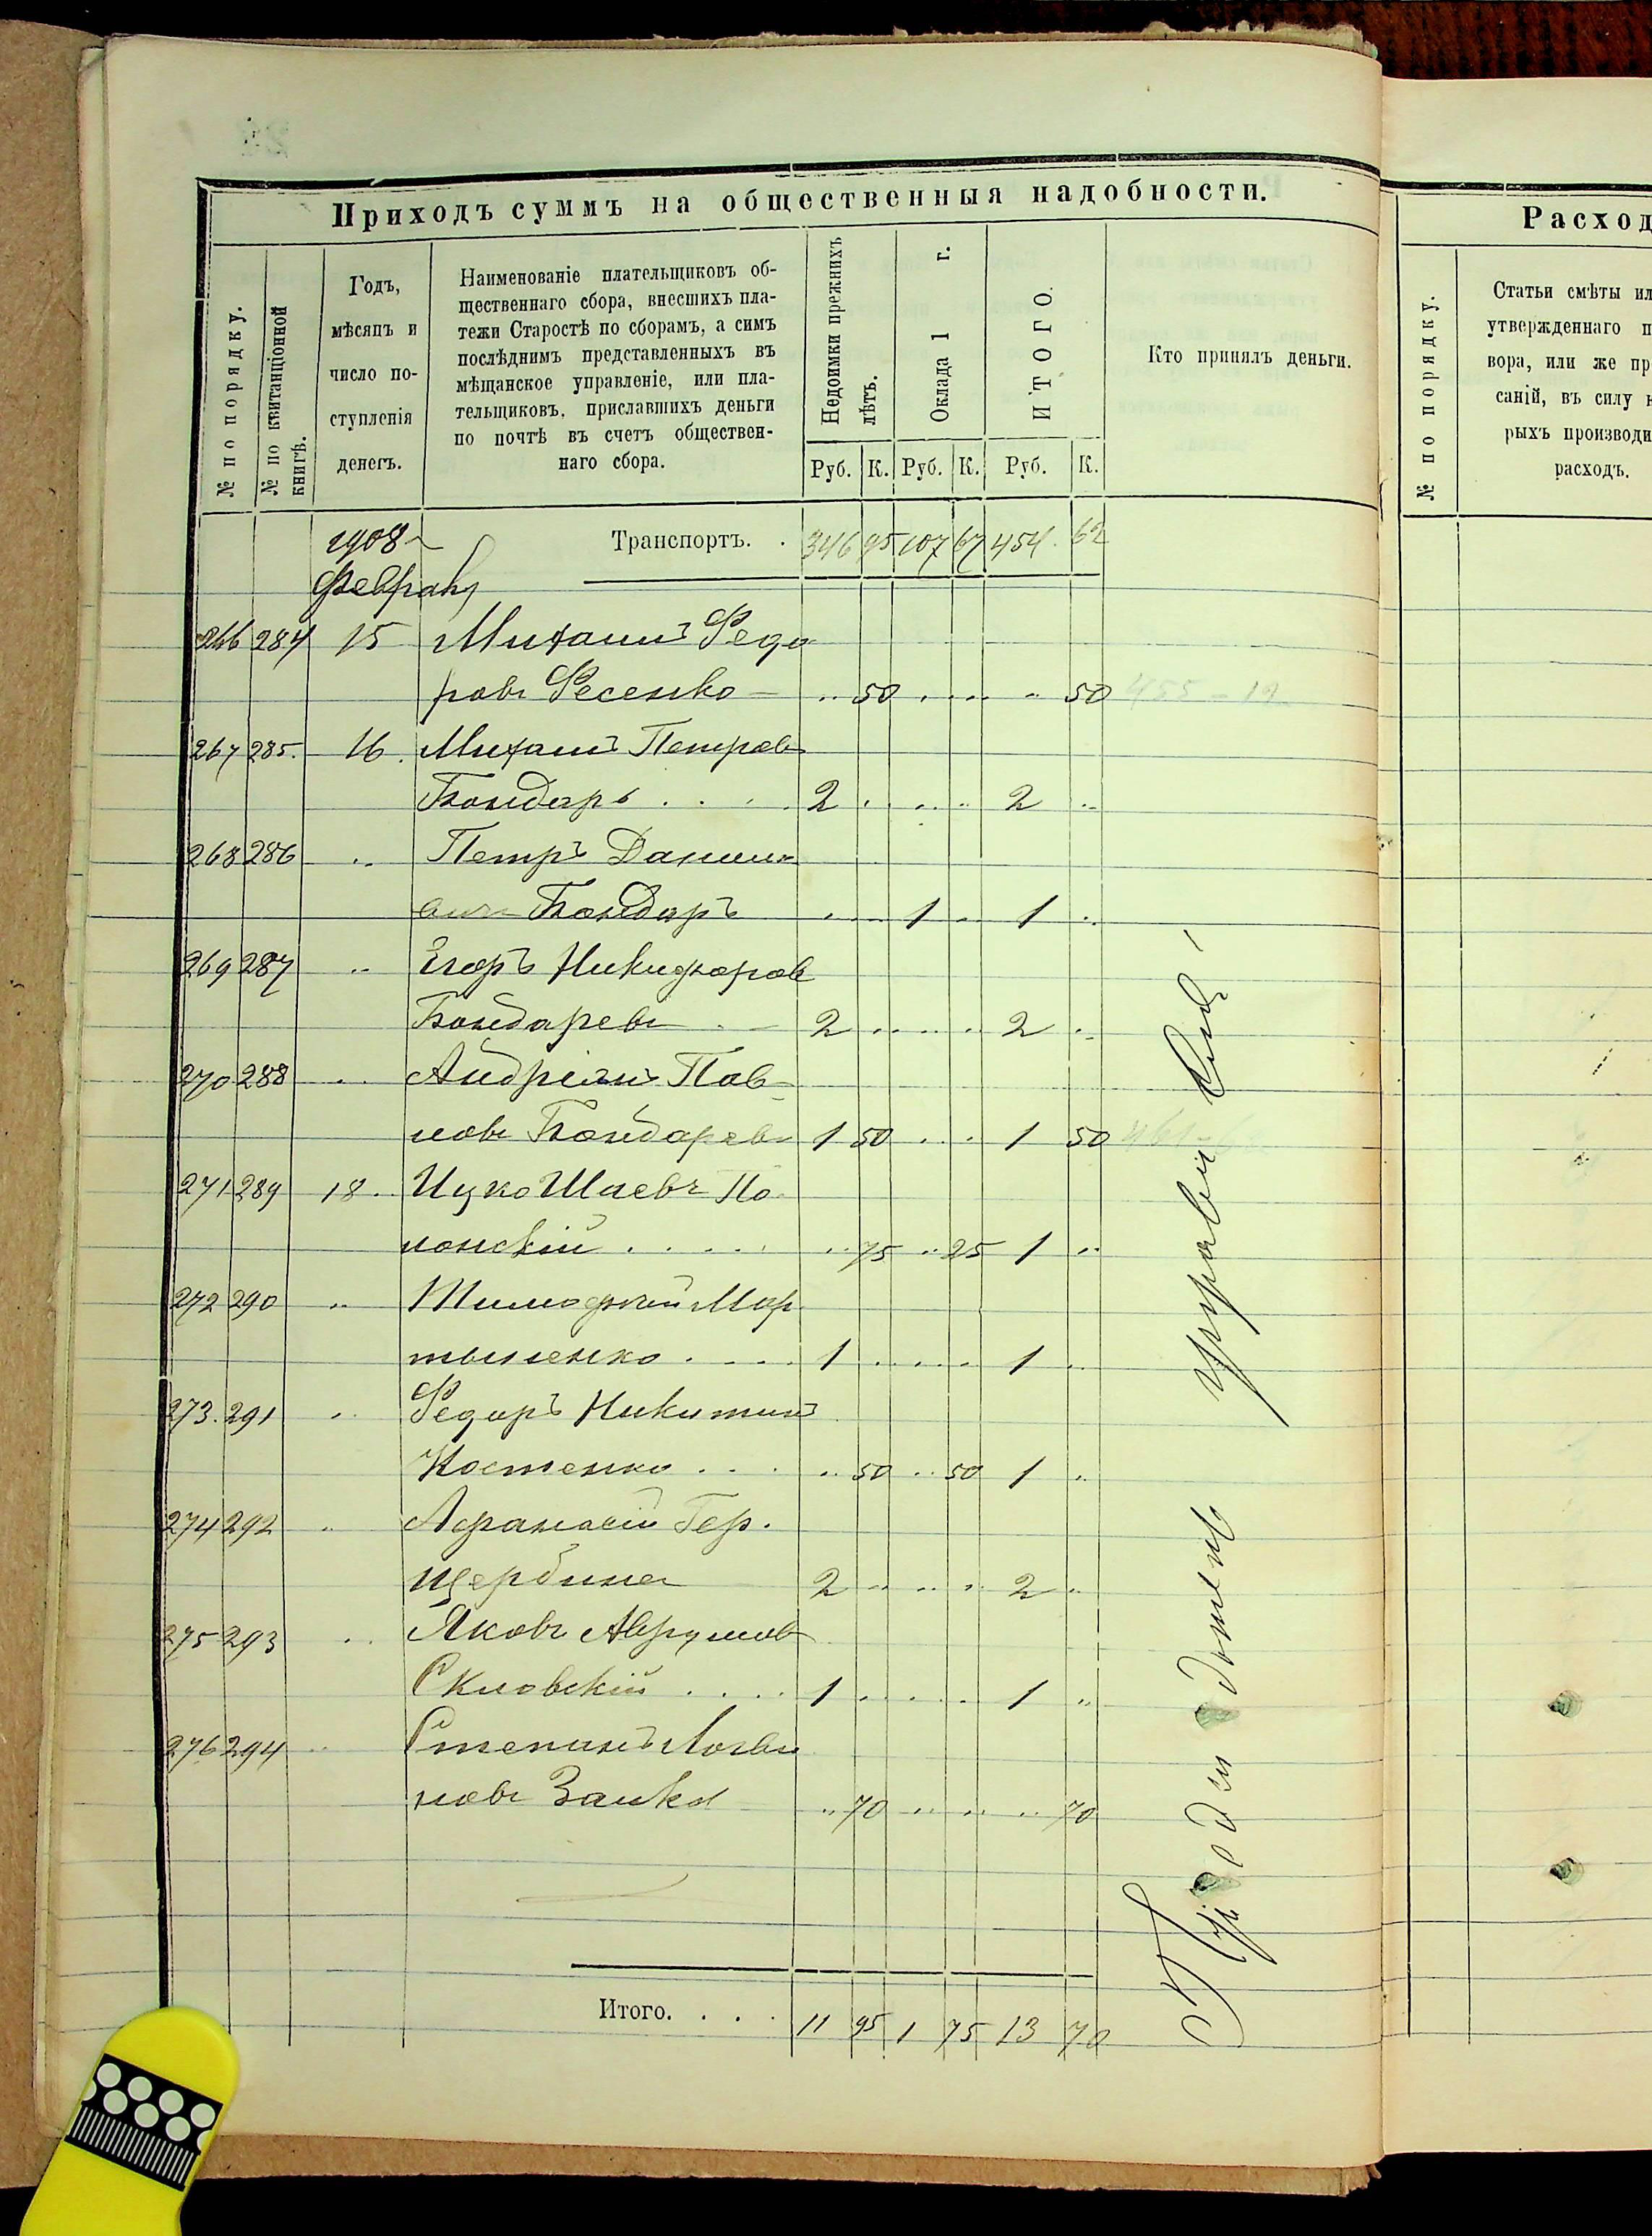 Приходъ суммъ на общественныя надобности.
№ по порядку.
№ по квитанціонной книгѣ.
Годъ,
мѣсяцъ и
число по-
ступленія
денегъ.
Наименованіе плательщиковъ об-
щественнаго сбора, внесшихъ пла-
тежи Старостѣ по сборамъ, а симъ
послѣднимъ представленныхъ въ
мѣщанское управленіе, или пла-
тельщиковъ, приславшихъ деньги
по почтѣ въ счетъ обществен-
наго сбора.
Недоимки прежнихъ лѣтъ.
Оклада 1 г.
ИТОГО.
Кто принялъ деньги.
Руб. К. Руб. К. Руб. К.
1908 Транспортъ. . 346 95 107 67 454 62
Февраль
266 284 15 Михаилъ Федо
ровъ Фесенко — .. 50 .. .. .. 50 455 - 12
267 285. 16. Михаилъ Петровъ
Бондарь . . . . 2 .. .. .. 2 ..
268 286 .. Петръ Данил
Бондарь .. .. 1 .. 1 ..
269 287 .. Егоръ Никифоров
Бондаревъ . — 2 .. .. .. 2 ..
270 288 .. Андріанъ Пав-
ловъ Бондаревъ 1 50 .. .. 1 50
271 289 18. Ицко Шаевъ По
лонскій . . . . . .. 75 .. 25 1 ..
272 290 .. Тимофей Мар
тыненко . . . . 1 .. .. .. 1 ..
273. 291 .. Федоръ Никитинъ
Костенко . . . .. 50 .. 50 1 ..
274 292 .. Афанасій Гер.
Щербина 2 .. .. .. 2 ..
275 293 .. Яковъ Аврумов
Скловскій . . . . 1 .. .. .. 1 ..
276 294 .. Степанъ Логви
новъ Заика .. 70 .. .. .. 70
Итого. . . . 11 95 1 75 13 70
Расход
№ по порядку.
Статьи смѣты ил
утвержденнаго п
вора, или же пр
саній, въ силу к
рыхъ производи
расходъ.